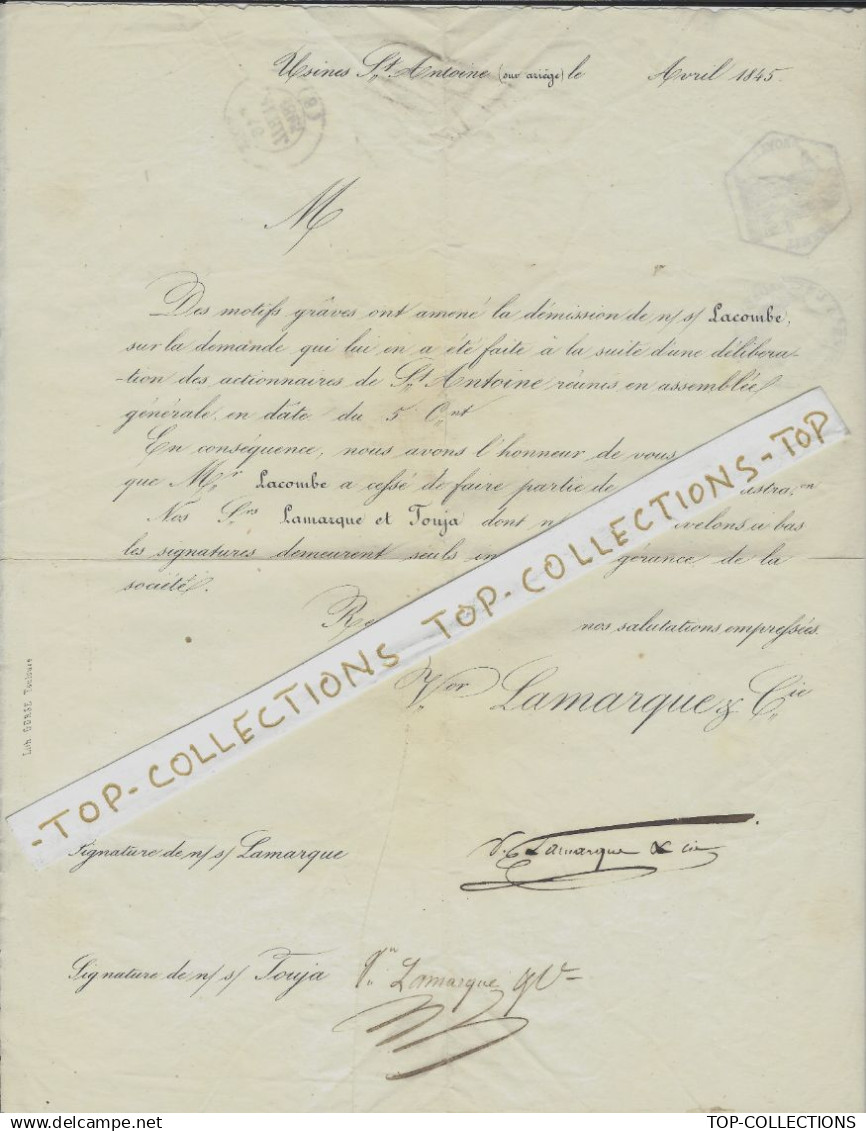 Usines St Antoine (sur ariège) le Avril 1845.
M
Des motifs grâves ont amené la démission de n/ s/ Lacombe,
sur la demande qui lui en a été faite à la suite d'une délibera-
-tion des actionnaires de St Antoine réunis en assemblée
générale, en date du 5 Cnt
En conséquence, nous avons l'honneur de vous
que Mr Lacombe a cessé de faire partie de
Nos Srs Lamarque et Touja dont velons ci bas
les signatures demeurent seuls gérance de la
société.
nos salutations empressées.
Vor Lamarque & Cie
Lith. Toulouse
-TOP-COLLECTIONS TOP-COLLECTIONS-TOP
Signature de n/ s/ Lamarque
V. Lamarque & cie
Signature de n/ s/ Touja
Lamarque
delcampe.net
TOP-COLLECTIONS